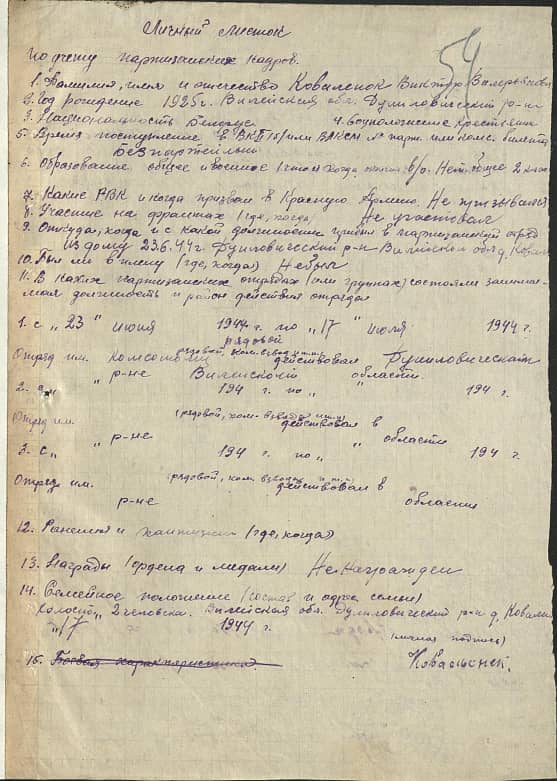 Личный листок
54
по учету партизанских кадров.
1. Фамилия, имя и отчество Коваленок Виктор Валерьянови
2. Год рождение 1925 г. Вилейския обл. Дуниловичский р-н
3. Национальность Белорус 4. Соцположение крестьянин
5. Время поступление в ВКП(б) или ВЛКСМ № парт. или комс. билета
Безпартейный
6. Образование общее и военное (что и когда окончил в/о. Нет. общее 2 класс
7. Какие РВК и когда призван в Красную Армию. Не призывался
8. Участие на фронтах (где, когда) Не участвовал
9. Откуда, когда и с какой должности прибыл в партизанский отряд
из дому 23.6.44 г. Дуниловичский р-н Вилейской обл д. Ковали
10. Был ли в плену (где, когда) Не был
11. В каких партизанских отрядах (или группах) состоял занимае-
мая должность и район действия отряда
1. с „ 23 " июня 1944 г. по „ 17 " июля 1944 г.
рядовой
Отряд им. Комсомола рядовой, ком. взвода и т.п. действовал Дуниловическом
р-не Вилейской области
2. с „ " 194 г. по „ " 194 г.
Отряд им. (рядовой, ком. взвода и т.п) действовал в
р-не области
3. с „ " 194 г. по „ " 194 г.
Отряд им. (рядовой, ком. взвода и т.п) действовал в
р-не области
12. Ранения и контузии (где, когда)
13. Награды (ордена и медали) Не награжден
14. Семейное положение (состав и адрес семьи)
холост, 2 человека. Вилейская обл. Дуниловичский р-н д. Ковали
„ 17 1944 г.
(личная подпись)
15. Боевая характеристика. Коваленок.